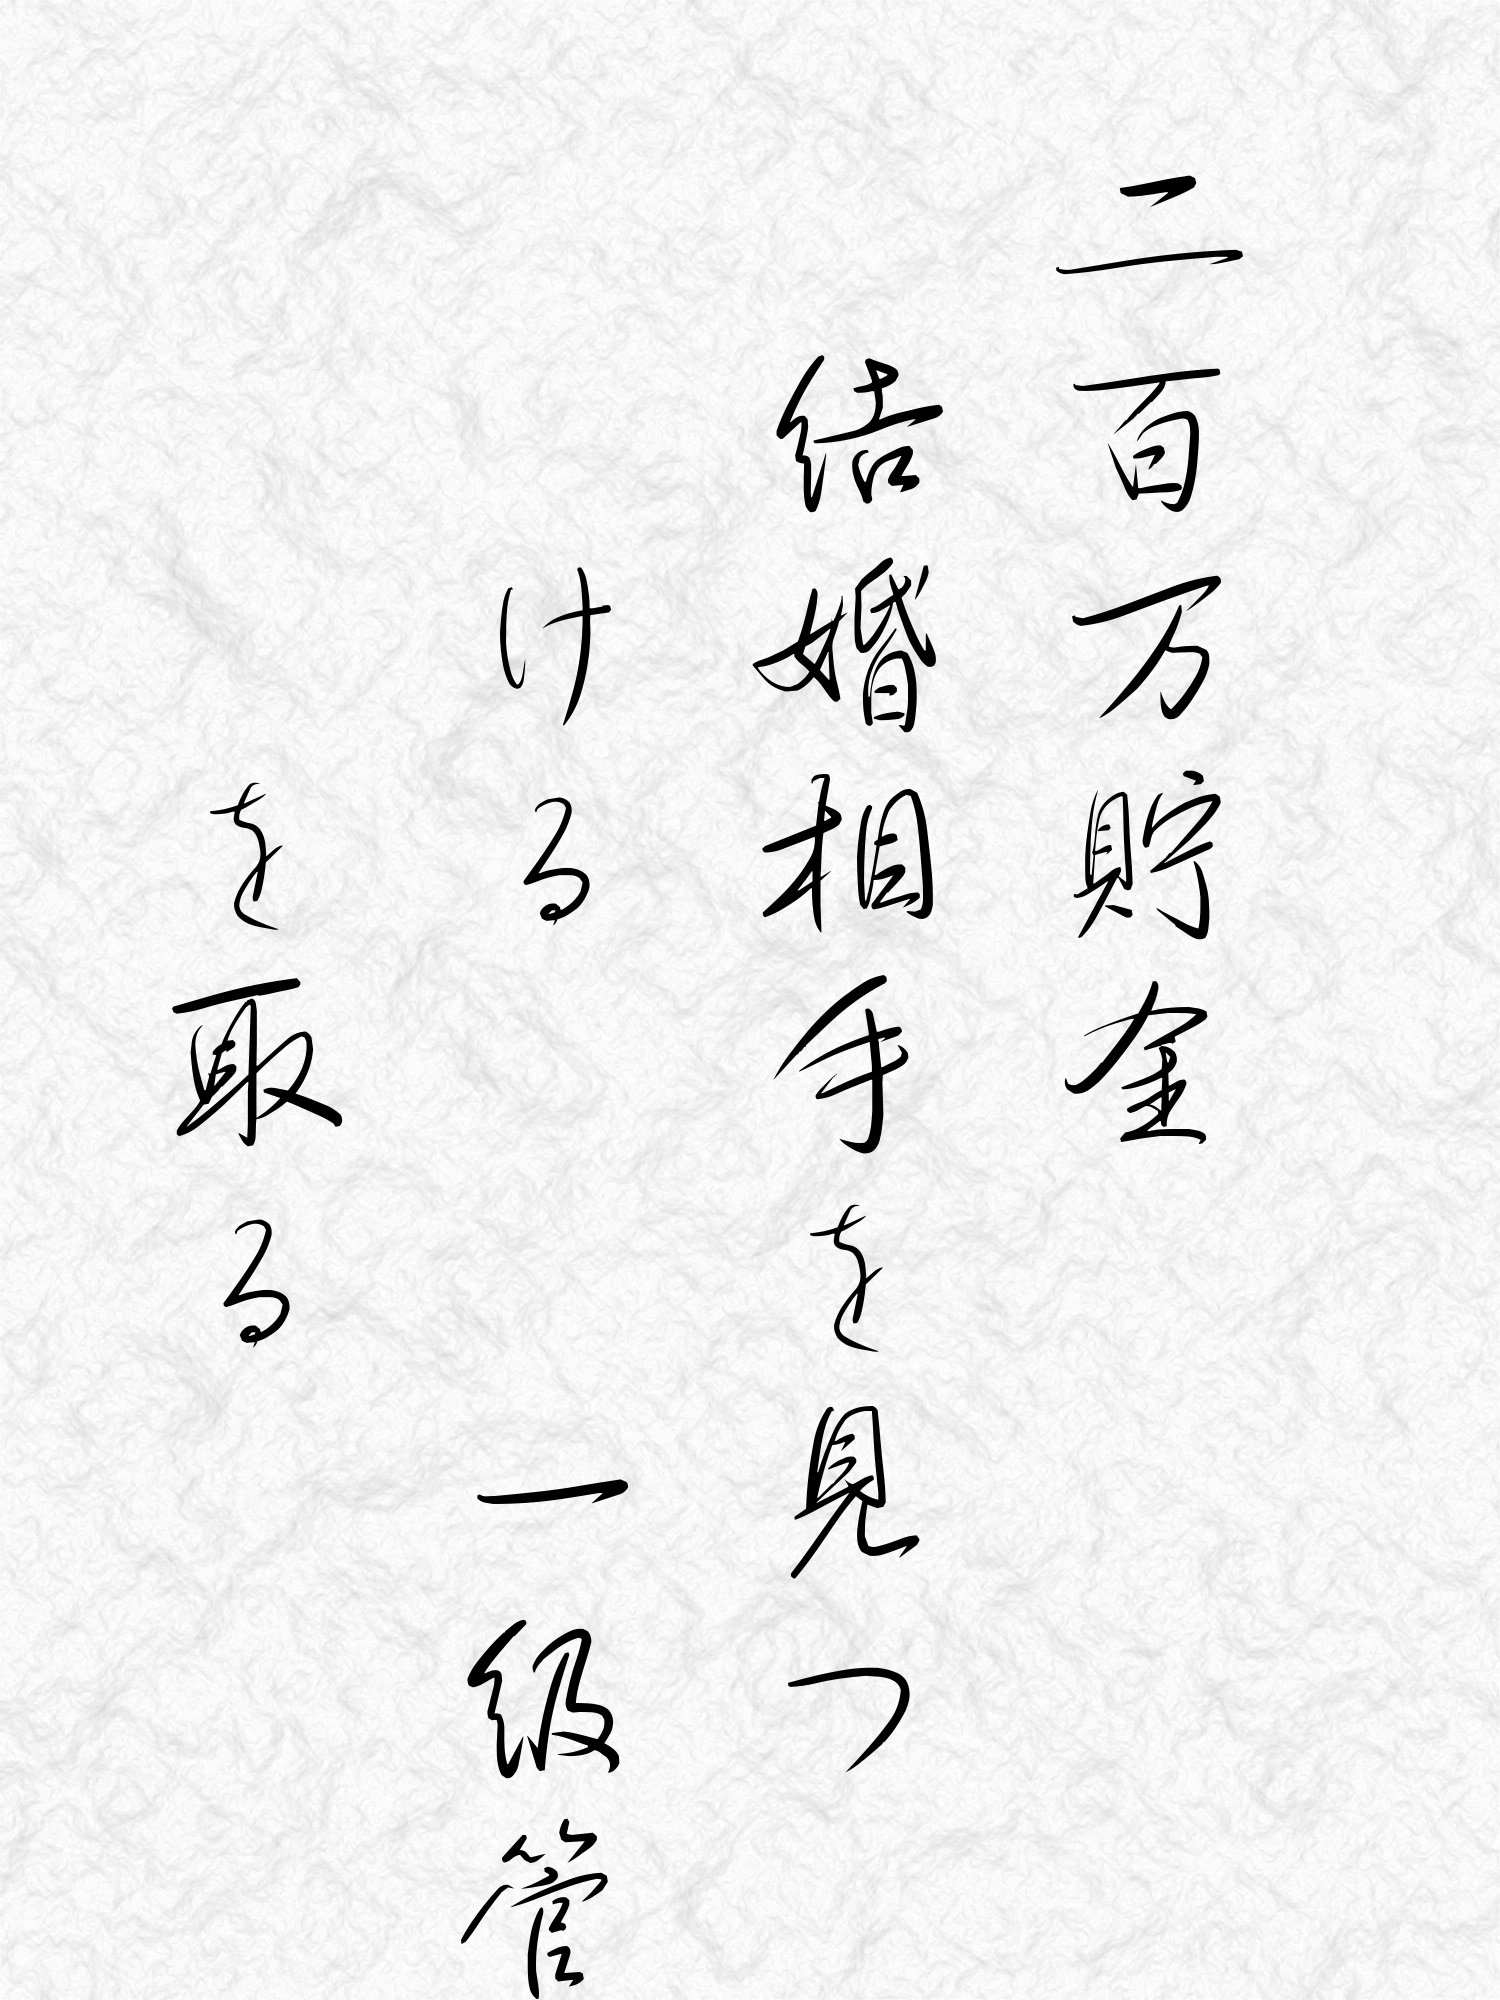 二百万貯金
結婚相手を見つ
ける　一級管
を取る